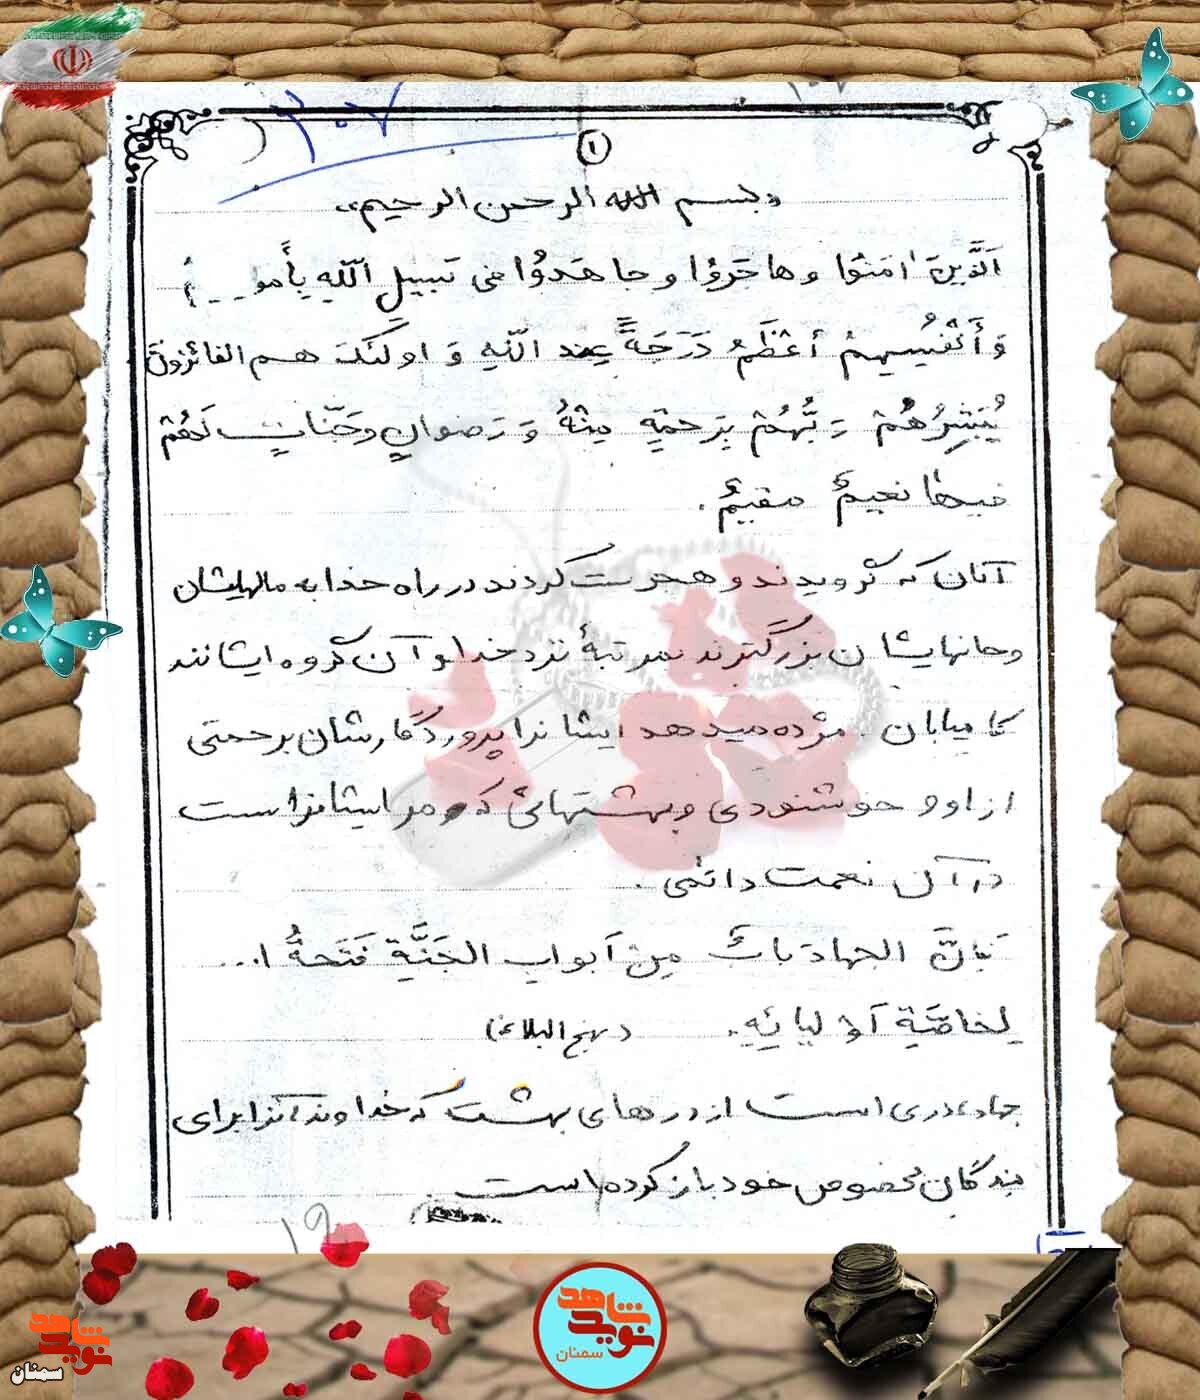 ۲۰۷
۱
«بسم الله الرحمن الرحیم»
اَلَّذینَ امَنوُا وهاجَروُا وجاهَدوُا فی سَبیلِ اللّهِ بِأَمو...
وَ أَنْفُسِهِمْ أعْظَمُ دَرَجَةً عِند اللّهِ وَ اولئکَ هم الفائزون
یُبَشِّرُهُمْ رَبُّهُمْ بِرَحمَةٍ مِنْهُ وَ رَضوانٍ وجَنّاتٍ لَهُمْ
فیها نعیمٌ مقیمٌ.
آنان که گرویدند و هجرت کردند در راه خدا به مالهایشان
وجانهایشان بزرگترند مرتبهٔ نزد خدا و آن گروه ایشانند
کامیابان. مژده میدهد ایشانرا پروردگارشان برحمتی
از او و خوشنودی و بهشتهائی که مر ایشانراست
در آن نعمت دائمی.
فَاِنَّ الجهادَ بابٌ مِنْ اَبواب الجَنَّةِ فَتَحهُ ا...
لِخاصَّةِ اَوْلیائِهِ. (نهج البلاغه)
جهاد دری است از درهای بهشت که خداوند آنرا برای
بندگان مخصوص خود باز کرده است.
۱۹
نوید شاهد
سمنان
نوید شاهد
سمنان